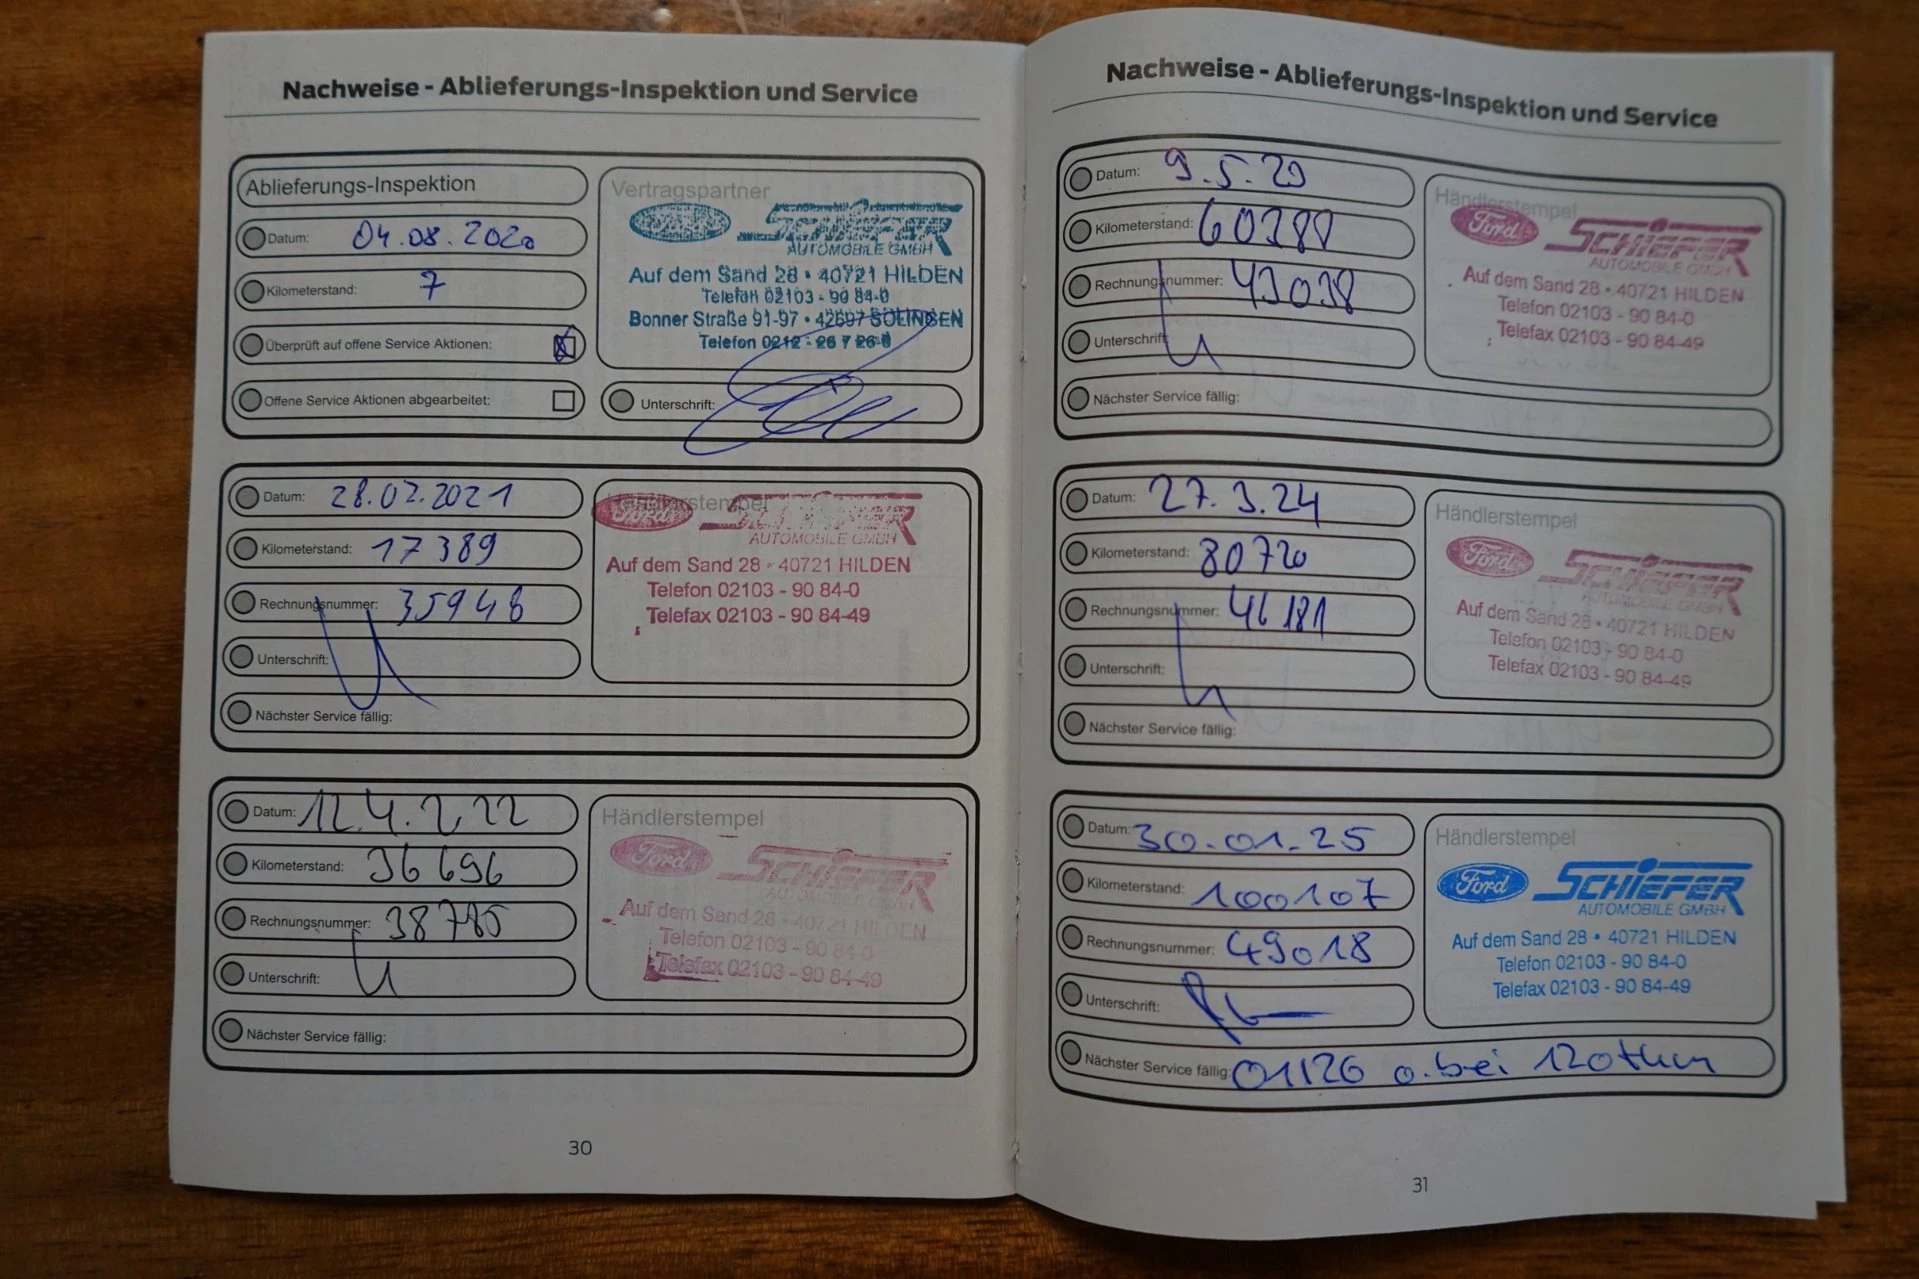 Nachweise - Ablieferungs-Inspektion und Service
Ablieferungs-Inspektion
Datum: 04.08.2020
Kilometerstand: 7
Überprüft auf offene Service Aktionen:
Offene Service Aktionen abgearbeitet:
Vertragspartner
Ford SCHIEFER
AUTOMOBILE GMBH
Auf dem Sand 28 • 40721 HILDEN
Telefon 02103 - 90 84-0
Bonner Straße 91-97 • 42697 SOLINGEN
Telefon 0212 - 26 7 26-0
Unterschrift:
Datum: 28.02.2021
Kilometerstand: 17389
Rechnungsnummer: 35948
Unterschrift:
Nächster Service fällig:
Händlerstempel
Ford SCHIEFER
AUTOMOBILE GMBH
Auf dem Sand 28 • 40721 HILDEN
Telefon 02103 - 90 84-0
Telefax 02103 - 90 84-49
Datum: 12.4.2022
Kilometerstand: 36696
Rechnungsnummer: 38785
Unterschrift:
Nächster Service fällig:
Händlerstempel
Ford SCHIEFER
AUTOMOBILE GMBH
Auf dem Sand 28 • 40721 HILDEN
Telefon 02103 - 90 84-0
Telefax 02103 - 90 84-49
30
Nachweise - Ablieferungs-Inspektion und Service
Datum:
Kilometerstand:
Rechnungsnummer:
Unterschrift:
Nächster Service fällig:
Händlerstempel
Ford SCHIEFER
AUTOMOBILE GMBH
Auf dem Sand 28 • 40721 HILDEN
Telefon 02103 - 90 84-0
Telefax 02103 - 90 84-49
Datum: 27.3.24
Kilometerstand: 80720
Rechnungsnummer: 46181
Unterschrift:
Nächster Service fällig:
Händlerstempel
Ford SCHIEFER
AUTOMOBILE GMBH
Auf dem Sand 28 • 40721 HILDEN
Telefon 02103 - 90 84-0
Telefax 02103 - 90 84-49
Datum: 30.01.25
Kilometerstand: 100107
Rechnungsnummer: 49018
Unterschrift:
Nächster Service fällig: 01/26 o. bei 120tkm
Händlerstempel
Ford SCHIEFER
AUTOMOBILE GMBH
Auf dem Sand 28 • 40721 HILDEN
Telefon 02103 - 90 84-0
Telefax 02103 - 90 84-49
31